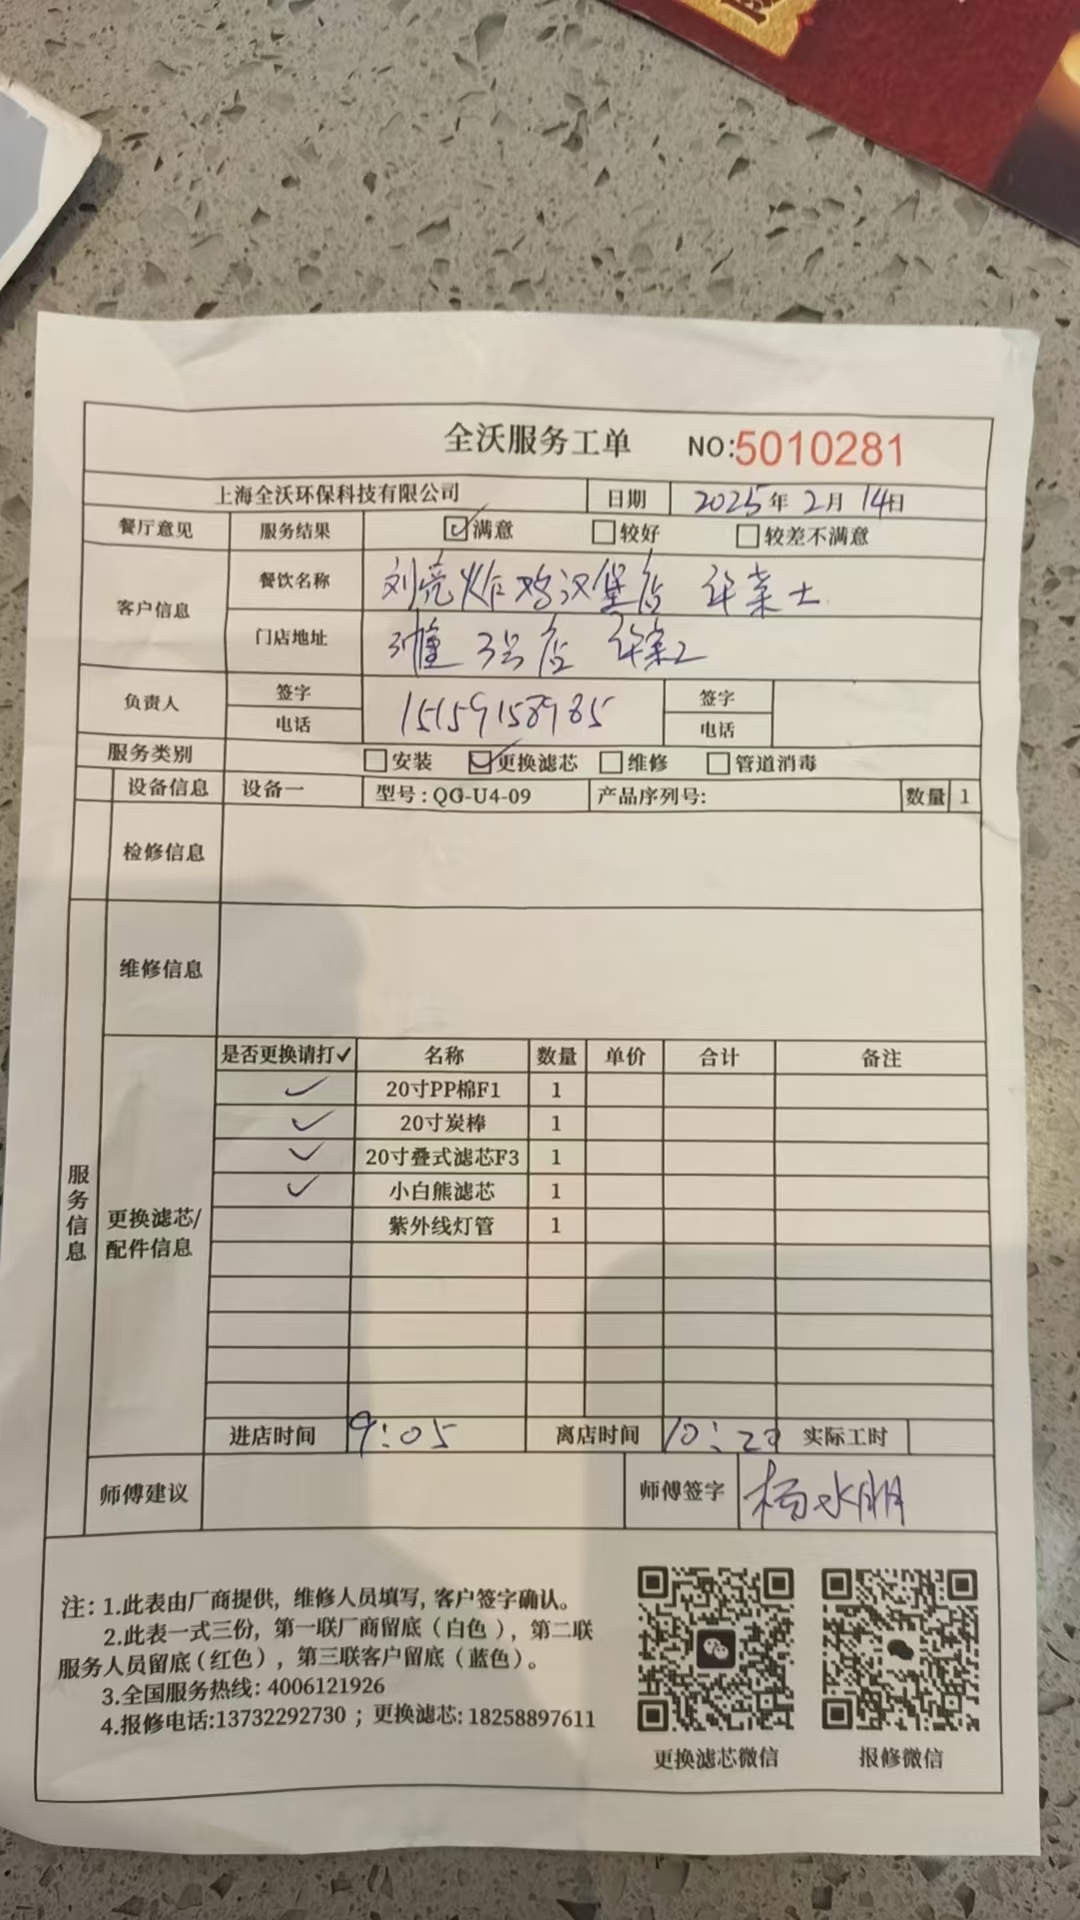 全沃服务工单 NO:5010281
上海全沃环保科技有限公司 日期 2025年2月14日
餐厅意见 服务结果 满意 较好 较差不满意
客户信息 餐饮名称 炸鸡汉堡店
门店地址 3号店
负责人 签字 签字
电话 15159158985 电话
服务类别 安装 更换滤芯 维修 管道消毒
设备信息 设备一 型号:QG-U4-09 产品序列号: 数量 1
检修信息
维修信息
服务信息
更换滤芯/配件信息
是否更换请打✓ 名称 数量 单价 合计 备注
✓ 20寸PP棉F1 1
✓ 20寸炭棒 1
✓ 20寸叠式滤芯F3 1
✓ 小白熊滤芯 1
紫外线灯管 1
进店时间 9:05 离店时间 实际工时
师傅建议 师傅签字 杨水朋
注: 1.此表由厂商提供, 维修人员填写, 客户签字确认。
2.此表一式三份, 第一联厂商留底(白色), 第二联
服务人员留底(红色), 第三联客户留底(蓝色)。
3.全国服务热线: 4006121926
4.报修电话:13732292730 ; 更换滤芯: 18258897611
更换滤芯微信 报修微信